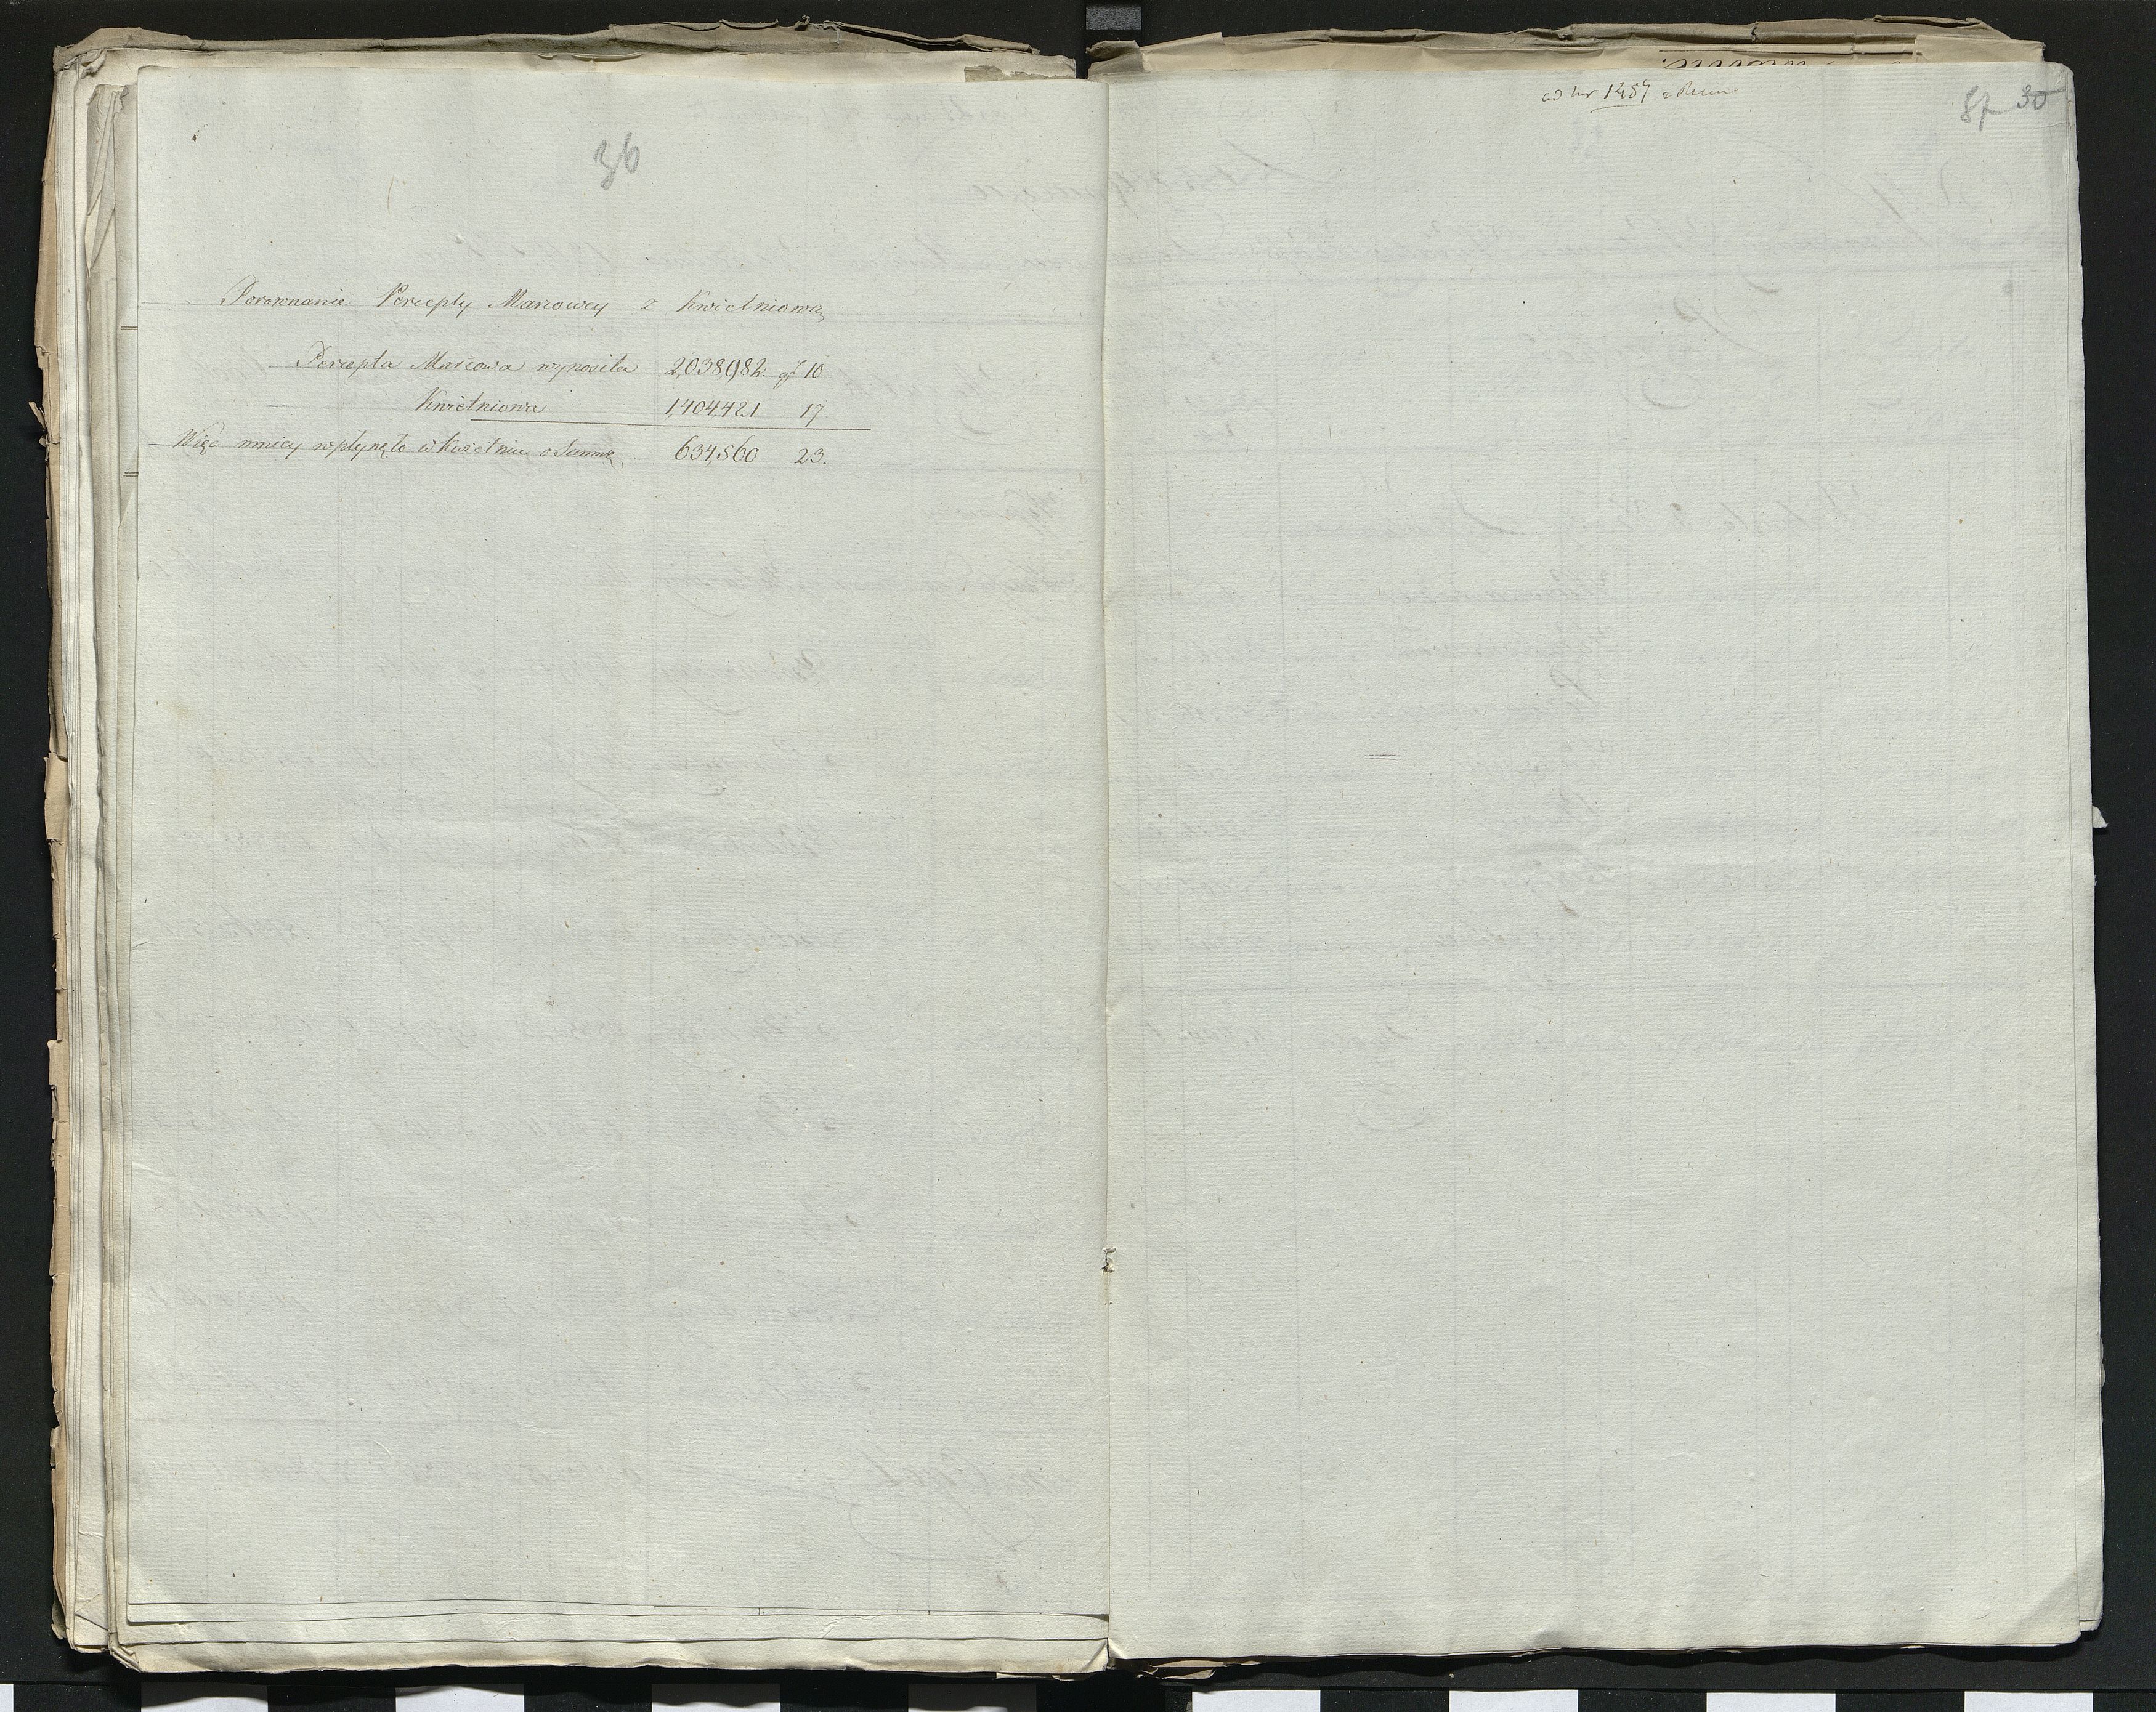 36
Porównanie Percepty Marcowey z Kwietniową,
Percepta Marcowa wynosiła 2,038,982. gr 10
Kwietniowa 1,404,421 17
Więc mniey wpłynęło w Kwietniu o Summę, 634,560 23.
ad nr 1457
87 30